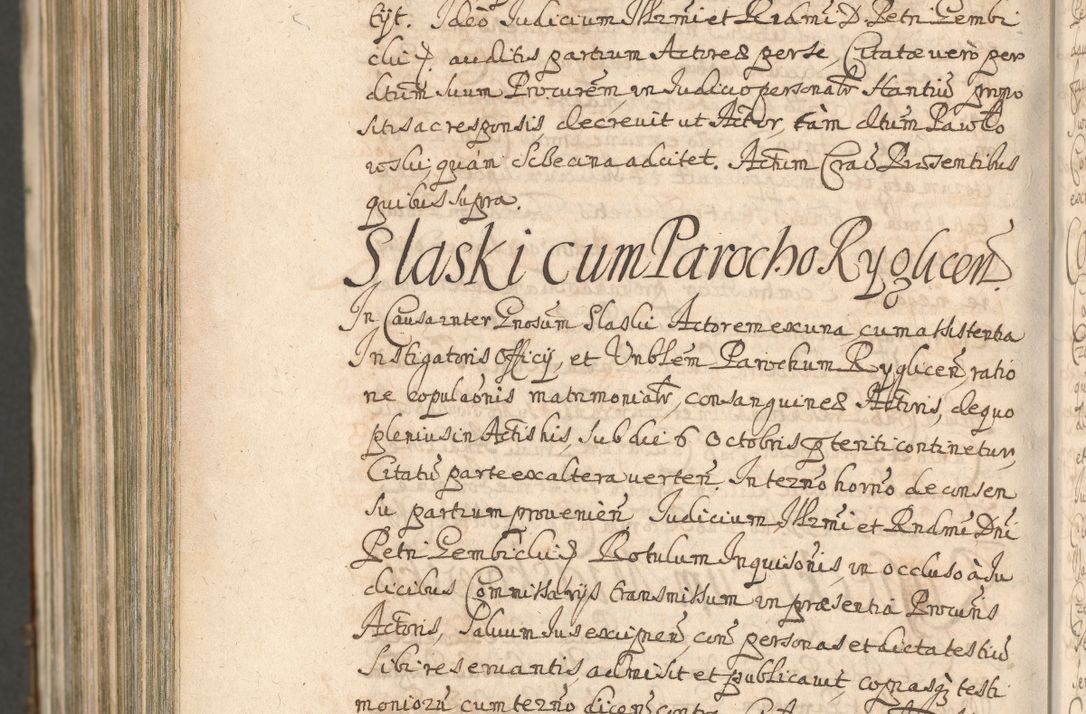 tijt. Ideo Judicium Illrmi et Rndmi D. Petri Gembi
ckij auditis partium Actore & per se, Citatæ vero per
dtum suum Procurem, in Judicio personalr stantiu propo
sitis ac responsis, decrevit ut Actor, tàm dtum Pawło
wski, quàm Sebecina ad citet. Actum Crac Præsentibus
quibus supra.
Slaski cum Parocho Ryglicen̄.
In Causa inter Gnosum Slaski Actorem ex una, cum assistentia
Instigatoris Officij, et Unblem Parochum Ryglicen, ratio
ne copulaonis matrimonialr, consanguineæ Actoris, de quo
plenius in Actis his, sub die 6 Octobris pteriti continetur,
Citatu parte ex altera verten. In termo horno de consen
su partium provenien, Judicium Illrmi et Rndmi Dni
Petri Gembickij Rotulum Inquisonis, in occluso à Ju
dicibus Commissarijs transmissum in præsentia Procuris
Actoris, salvum Jus excipien, con personas et dicta testiu
sibi reservantis, admisit et publicavit, copiasq testi
moniorū cum termo dicen contra